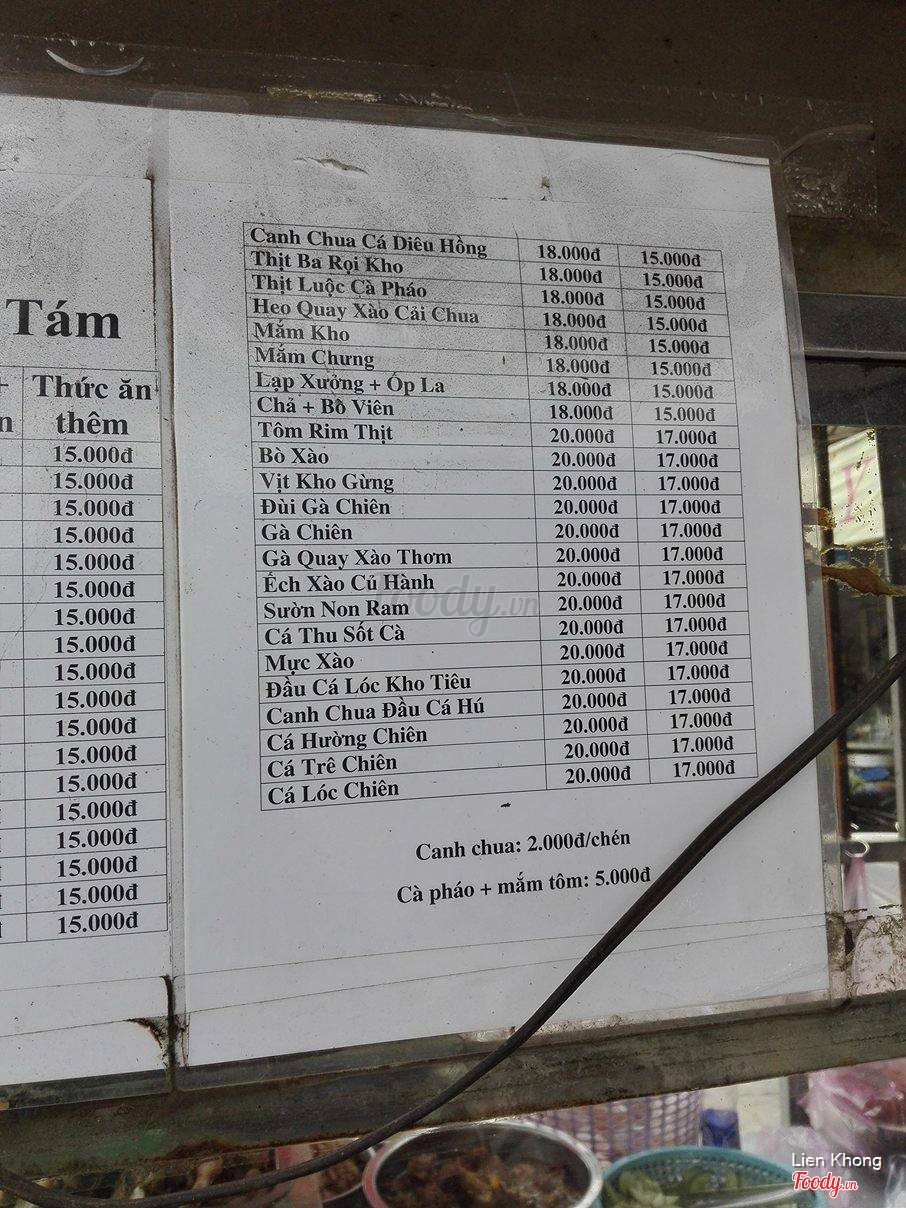 Tám
Thức ăn
thêm
15.000đ
15.000đ
15.000đ
15.000đ
15.000đ
15.000đ
15.000đ
15.000đ
15.000đ
15.000đ
15.000đ
15.000đ
15.000đ
15.000đ
15.000đ
15.000đ
15.000đ
15.000đ
Canh Chua Cá Diêu Hồng 18.000đ 15.000đ
Thịt Ba Rọi Kho 18.000đ 15.000đ
Thịt Luộc Cà Pháo 18.000đ 15.000đ
Heo Quay Xào Cải Chua 18.000đ 15.000đ
Mắm Kho 18.000đ 15.000đ
Mắm Chưng 18.000đ 15.000đ
Lạp Xưởng + Ốp La 18.000đ 15.000đ
Chả + Bò Viên 18.000đ 15.000đ
Tôm Rim Thịt 20.000đ 17.000đ
Bò Xào 20.000đ 17.000đ
Vịt Kho Gừng 20.000đ 17.000đ
Đùi Gà Chiên 20.000đ 17.000đ
Gà Chiên 20.000đ 17.000đ
Gà Quay Xào Thơm 20.000đ 17.000đ
Ếch Xào Củ Hành 20.000đ 17.000đ
Sườn Non Ram 20.000đ 17.000đ
Cá Thu Sốt Cà 20.000đ 17.000đ
Mực Xào 20.000đ 17.000đ
Đầu Cá Lóc Kho Tiêu 20.000đ 17.000đ
Canh Chua Đầu Cá Hú 20.000đ 17.000đ
Cá Hường Chiên 20.000đ 17.000đ
Cá Trê Chiên 20.000đ 17.000đ
Cá Lóc Chiên 20.000đ 17.000đ
Canh chua: 2.000đ/chén
Cà pháo + mắm tôm: 5.000đ
foody.vn
Lien Khong
Foody.vn